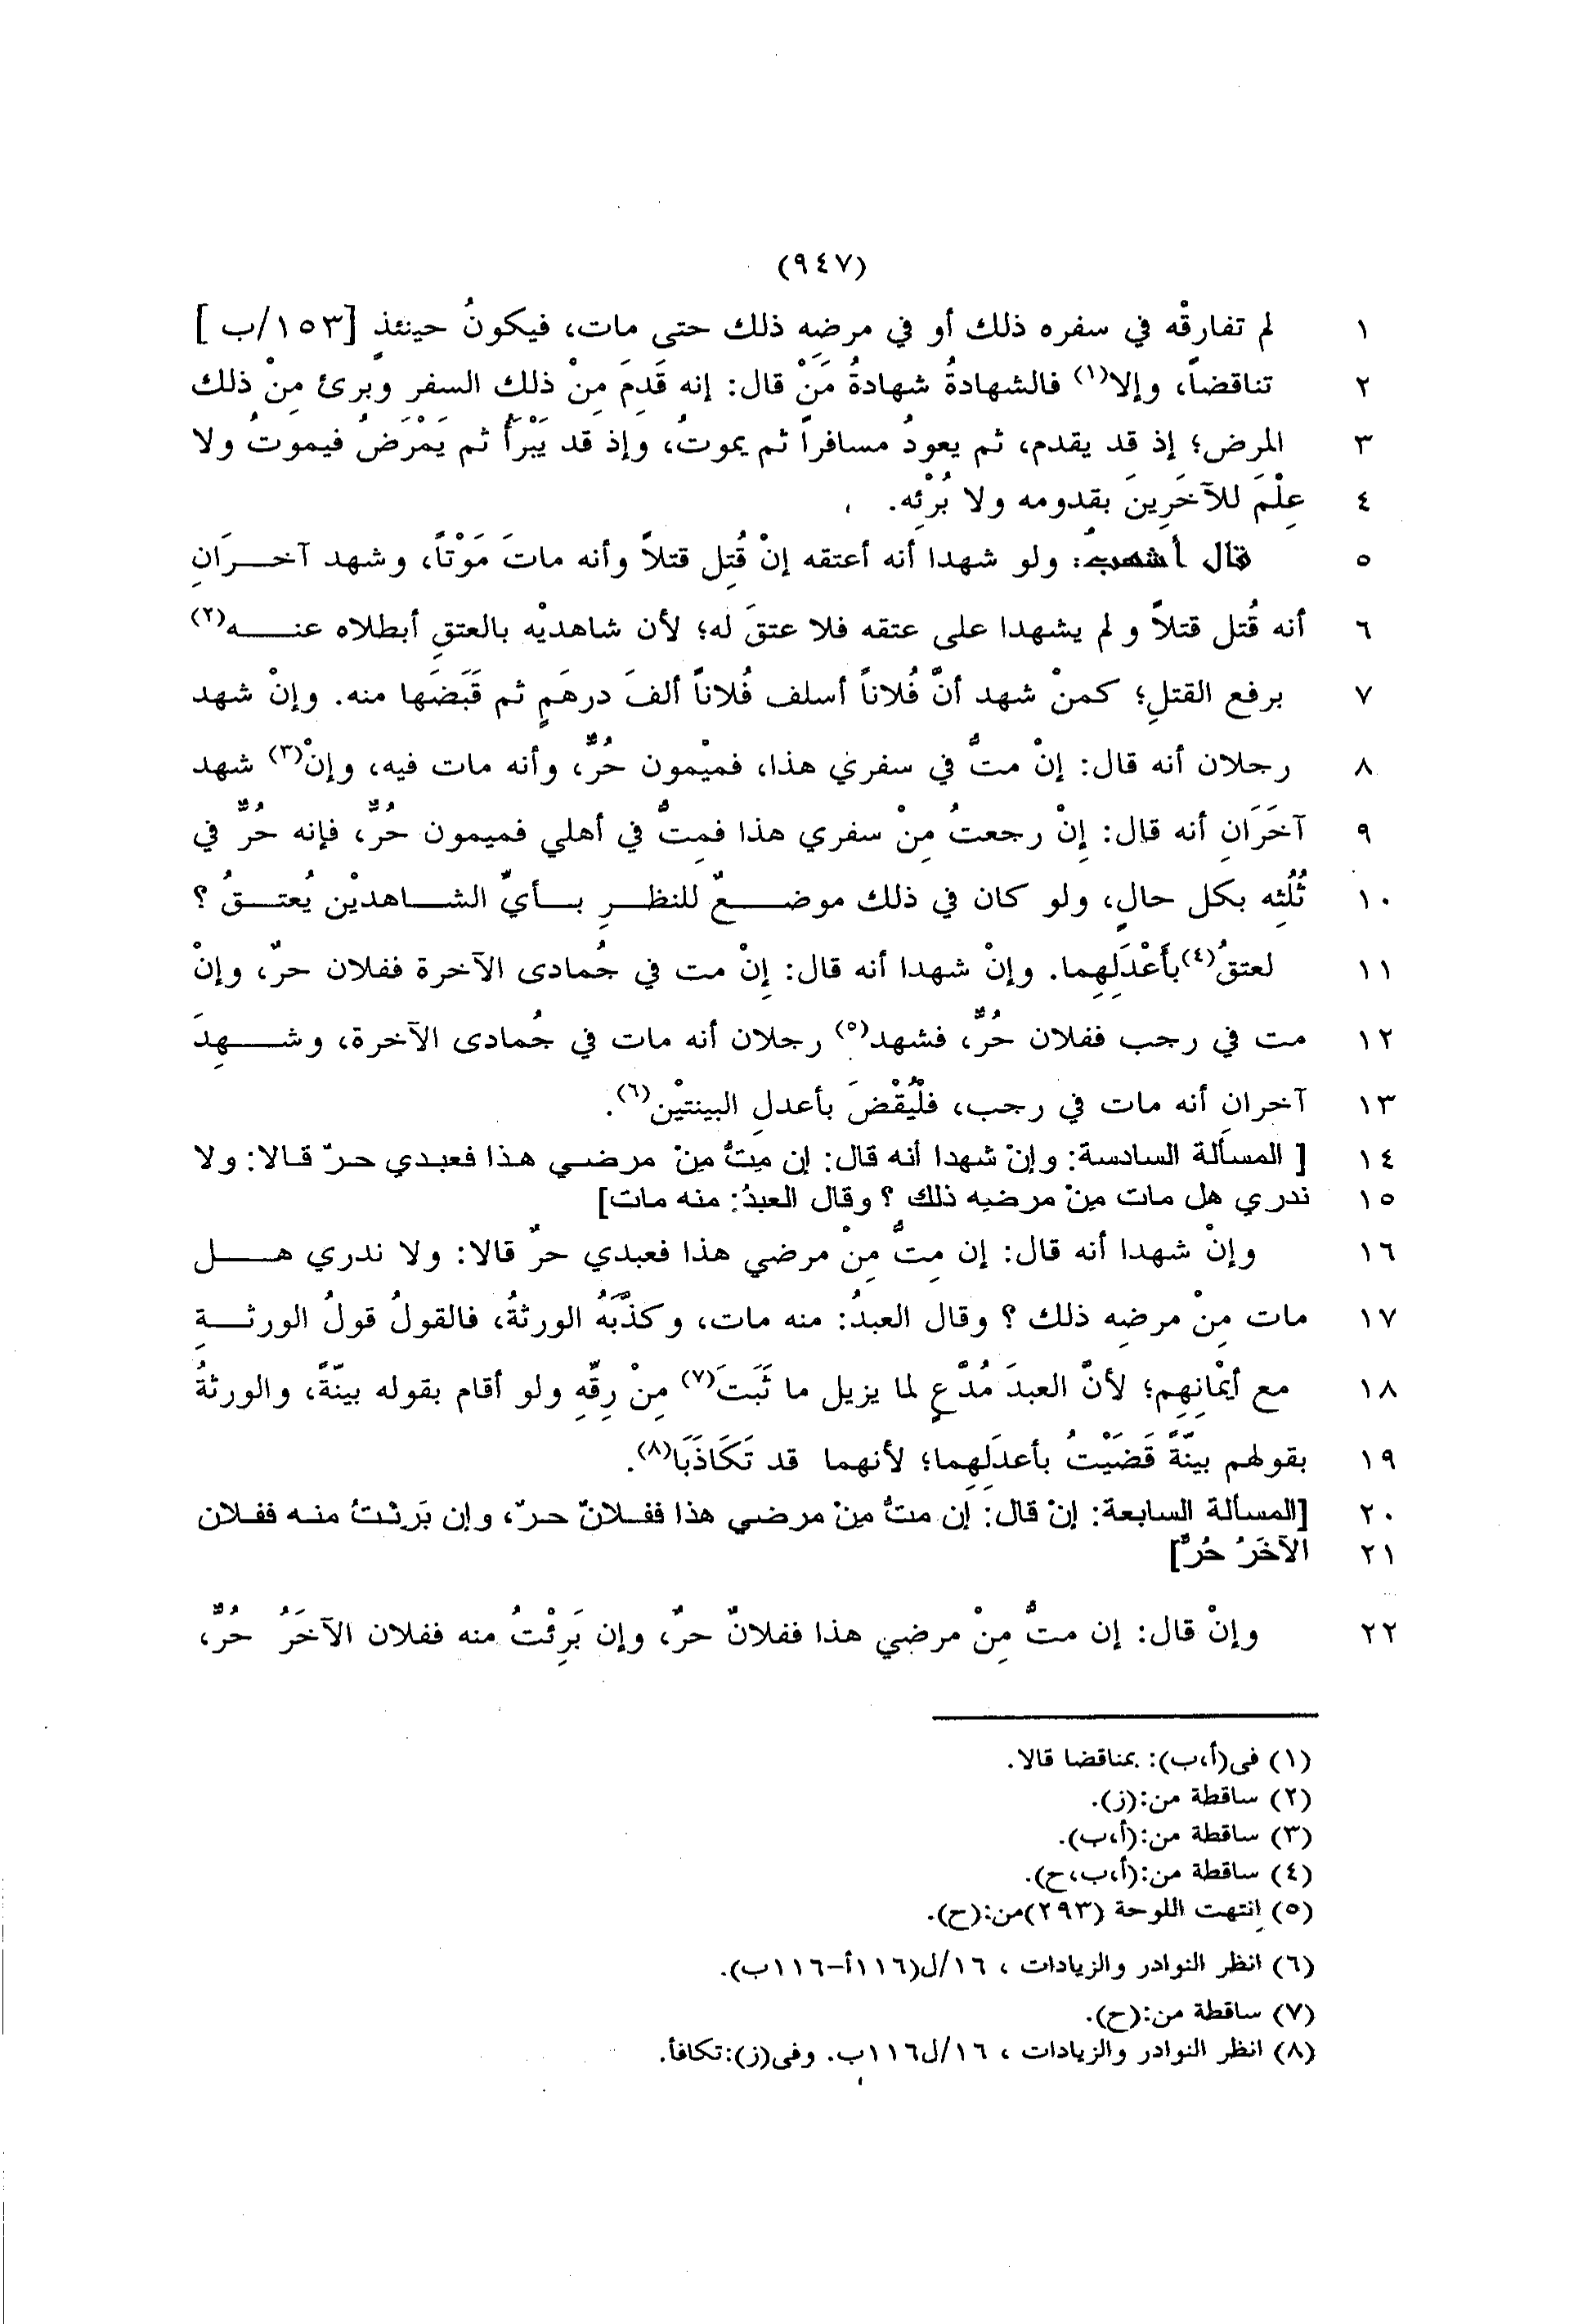 (٩٤٧)
١ لم تفارقْه في سفره ذلك أو في مرضِه ذلك حتى مات، فيكونُ حينئذٍ [١٥٣/ب ]
٢ تناقضاً، وإلا(١) فالشهادةُ شهادةُ مَنْ قال: إنه قَدِمَ مِنْ ذلك السفر وبرئ مِنْ ذلك
٣ المرض؛ إذ قد يقدم، ثم يعودُ مسافراً ثم يموتُ، وإذ قد يَبْرَأُ ثم يَمْرَضُ فيموتُ ولا
٤ عِلْمَ للآخَرِينَ بقدومه ولا بُرْئِه.
٥ قال أشهب: ولو شهدا أنه أعتقه إنْ قُتِل قتلاً وأنه ماتَ مَوْتاً، وشهد آخـــرَانِ
٦ أنه قُتل قتلاً و لم يشهدا على عتقه فلا عتقَ له؛ لأن شاهديْه بالعتقِ أبطلاه عنـــه(٢)
٧ برفع القتلِ؛ كمنْ شهد أنَّ فُلاناً أسلف فُلاناً ألفَ درهَمٍ ثم قَبَضَها منه. وإنْ شهد
٨ رجلان أنه قال: إنْ متُّ في سفري هذا، فميْمون حُرٌّ، وأنه مات فيه، وإنْ(٣) شهد
٩ آخَرَانِ أنه قال: إنْ رجعتُ مِنْ سفري هذا فمِتُّ في أهلي فميمون حُرٌّ، فإنه حُرٌّ في
١٠ ثُلُثِه بكل حالٍ، ولو كان في ذلك موضـــعٌ للنظـــرِ بـــأيِّ الشـــاهديْن يُعتـــقُ ؟
١١ لعتقُ(٤)بأَعْدَلِهِما. وإنْ شهدا أنه قال: إنْ مت في جُمادى الآخرة ففلان حرٌ، وإنْ
١٢ مت في رجب ففلان حُرٌّ، فشهد(٥) رجلان أنه مات في جُمادى الآخرة، وشـــهِدَ
١٣ آخرانِ أنه مات في رجب، فلْيُقْضَ بأعدلِ البينتيْن(٦).
١٤ [ المسألة السادسة: وإنْ شهدا أنه قال: إن مِتُّ مِنْ مرضي هذا فعبدي حرّ قالا: ولا
١٥ ندري هل مات مِنْ مرضِه ذلك ؟ وقال العبدُ: منه مات]
١٦ وإنْ شهدا أنه قال: إن مِتُّ مِنْ مرضي هذا فعبدي حرٌ قالا: ولا ندري هـــل
١٧ مات مِنْ مرضِه ذلك ؟ وقال العبدُ: منه مات، وكذَّبَهُ الورثةُ، فالقولُ قولُ الورثـــةِ
١٨ مع أيْمانِهِم؛ لأنَّ العبدَ مُدَّعٍ لما يزيل ما ثَبَتَ(٧) مِنْ رِقِّهِ ولو أقام بقوله بينّةً، والورثةُ
١٩ بقولهم بينّةً قَضَيْتُ بأعدَلِهِما؛ لأنهما قد تَكَاذَبَا(٨).
٢٠ [المسألة السابعة: إنْ قال: إن متُّ مِنْ مرضي هذا ففلانٌ حرّ، وإن بَرئتُ منه ففلان
٢١ الآخَرُ حُرٌّ]
٢٢ وإنْ قال: إن متُّ مِنْ مرضي هذا ففلانٌ حرٌ، وإن بَرِئْتُ منه ففلان الآخَرُ حُرٌّ،
(١) فى(أ،ب): بمناقضا قالا.
(٢) ساقطة من:(ز).
(٣) ساقطة من:(أ،ب).
(٤) ساقطة من:(أ،ب،ح).
(٥) إنتهت اللوحة (٢٩٣)من:(ح).
(٦) انظر النوادر والزيادات ، ١٦/ل(١١٦أ-١١٦ب).
(٧) ساقطة من:(ح).
(٨) انظر النوادر والزيادات ، ١٦/ل١١٦ب. وفى(ز):تكافأ.